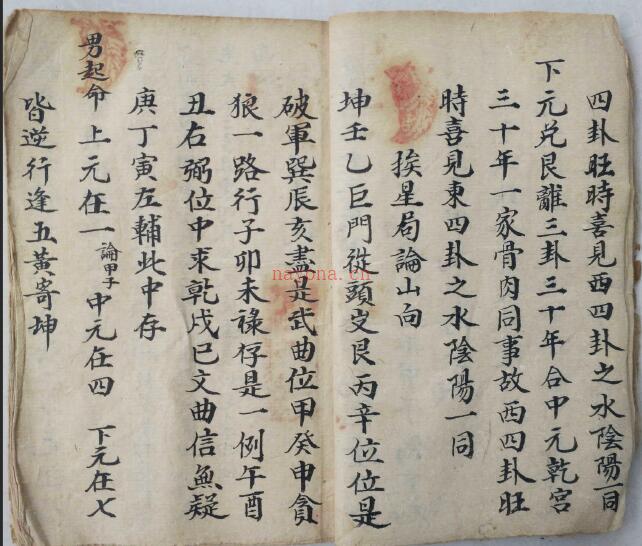 四卦旺時喜見西四卦之水陰陽一同
下元兑艮離三卦三十年合中元乾宮
三十年一家骨肉同事故西四卦旺
時喜見東四卦之水陰陽一同
挨星局論山向
坤壬乙巨門從頭㞮艮丙辛位位是
破軍巽辰亥盡是武曲位甲癸申貪
狼一路行子卯未祿存是一例午酉
丑右弼位中求乾戌巳文曲信無疑
庚丁寅左輔此中存
男起命上元在一論甲子中元在四 下元在七
皆逆行逢五黃寄坤
nayona.cn